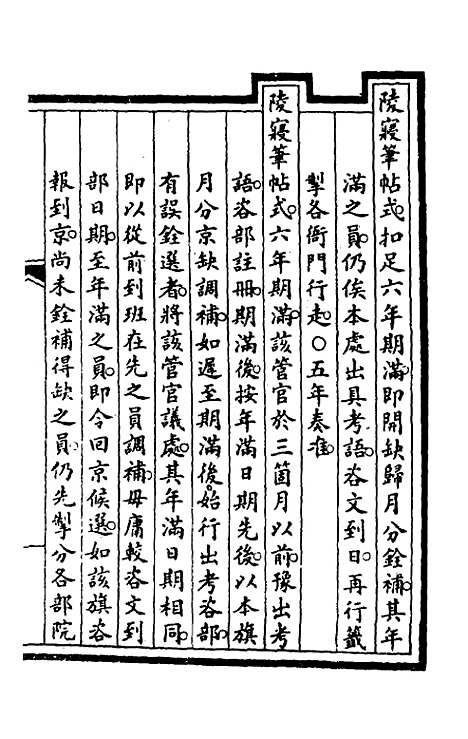 陵寢筆帖式。扣足六年期滿。即開缺歸月分銓補。其年
滿之員。仍俟本處出具考語。咨文到日。再行籤
掣各衙門行走。○五年奏准。
陵寢筆帖式。六年期滿。該管官於三箇月以前。豫出考
語。咨部註冊。期滿後。按年滿日期先後。以本旗
月分京缺調補。如遲至期滿後。始行出考咨部。
有誤銓選者。將該管官議處。其年滿日期相同。
即以從前到班在先之員調補。毋庸較咨文到
部日期。至年滿之員。即令回京候選。如該旗咨
報到京。尚未銓補得缺之員。仍先掣分各部院